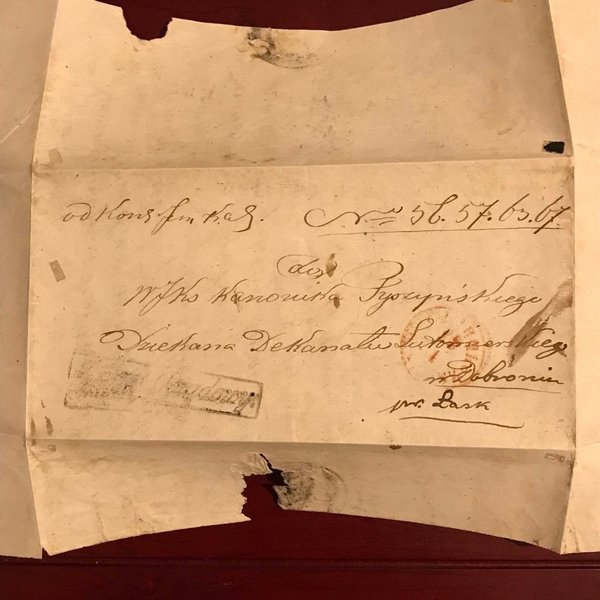 od Kons. Jen. Kal. Nro 56. 57. 63. 67.
do
WJKs Kanonika Pyszyńskiego
Dziekana Dekanatu Lutomierskiego
w Dobroniu
pr. Łask